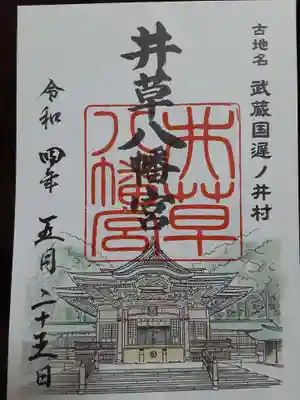 古地名 武蔵国遅ノ井村
井草八幡宮
井草
八幡宮
令和四年五月二十五日